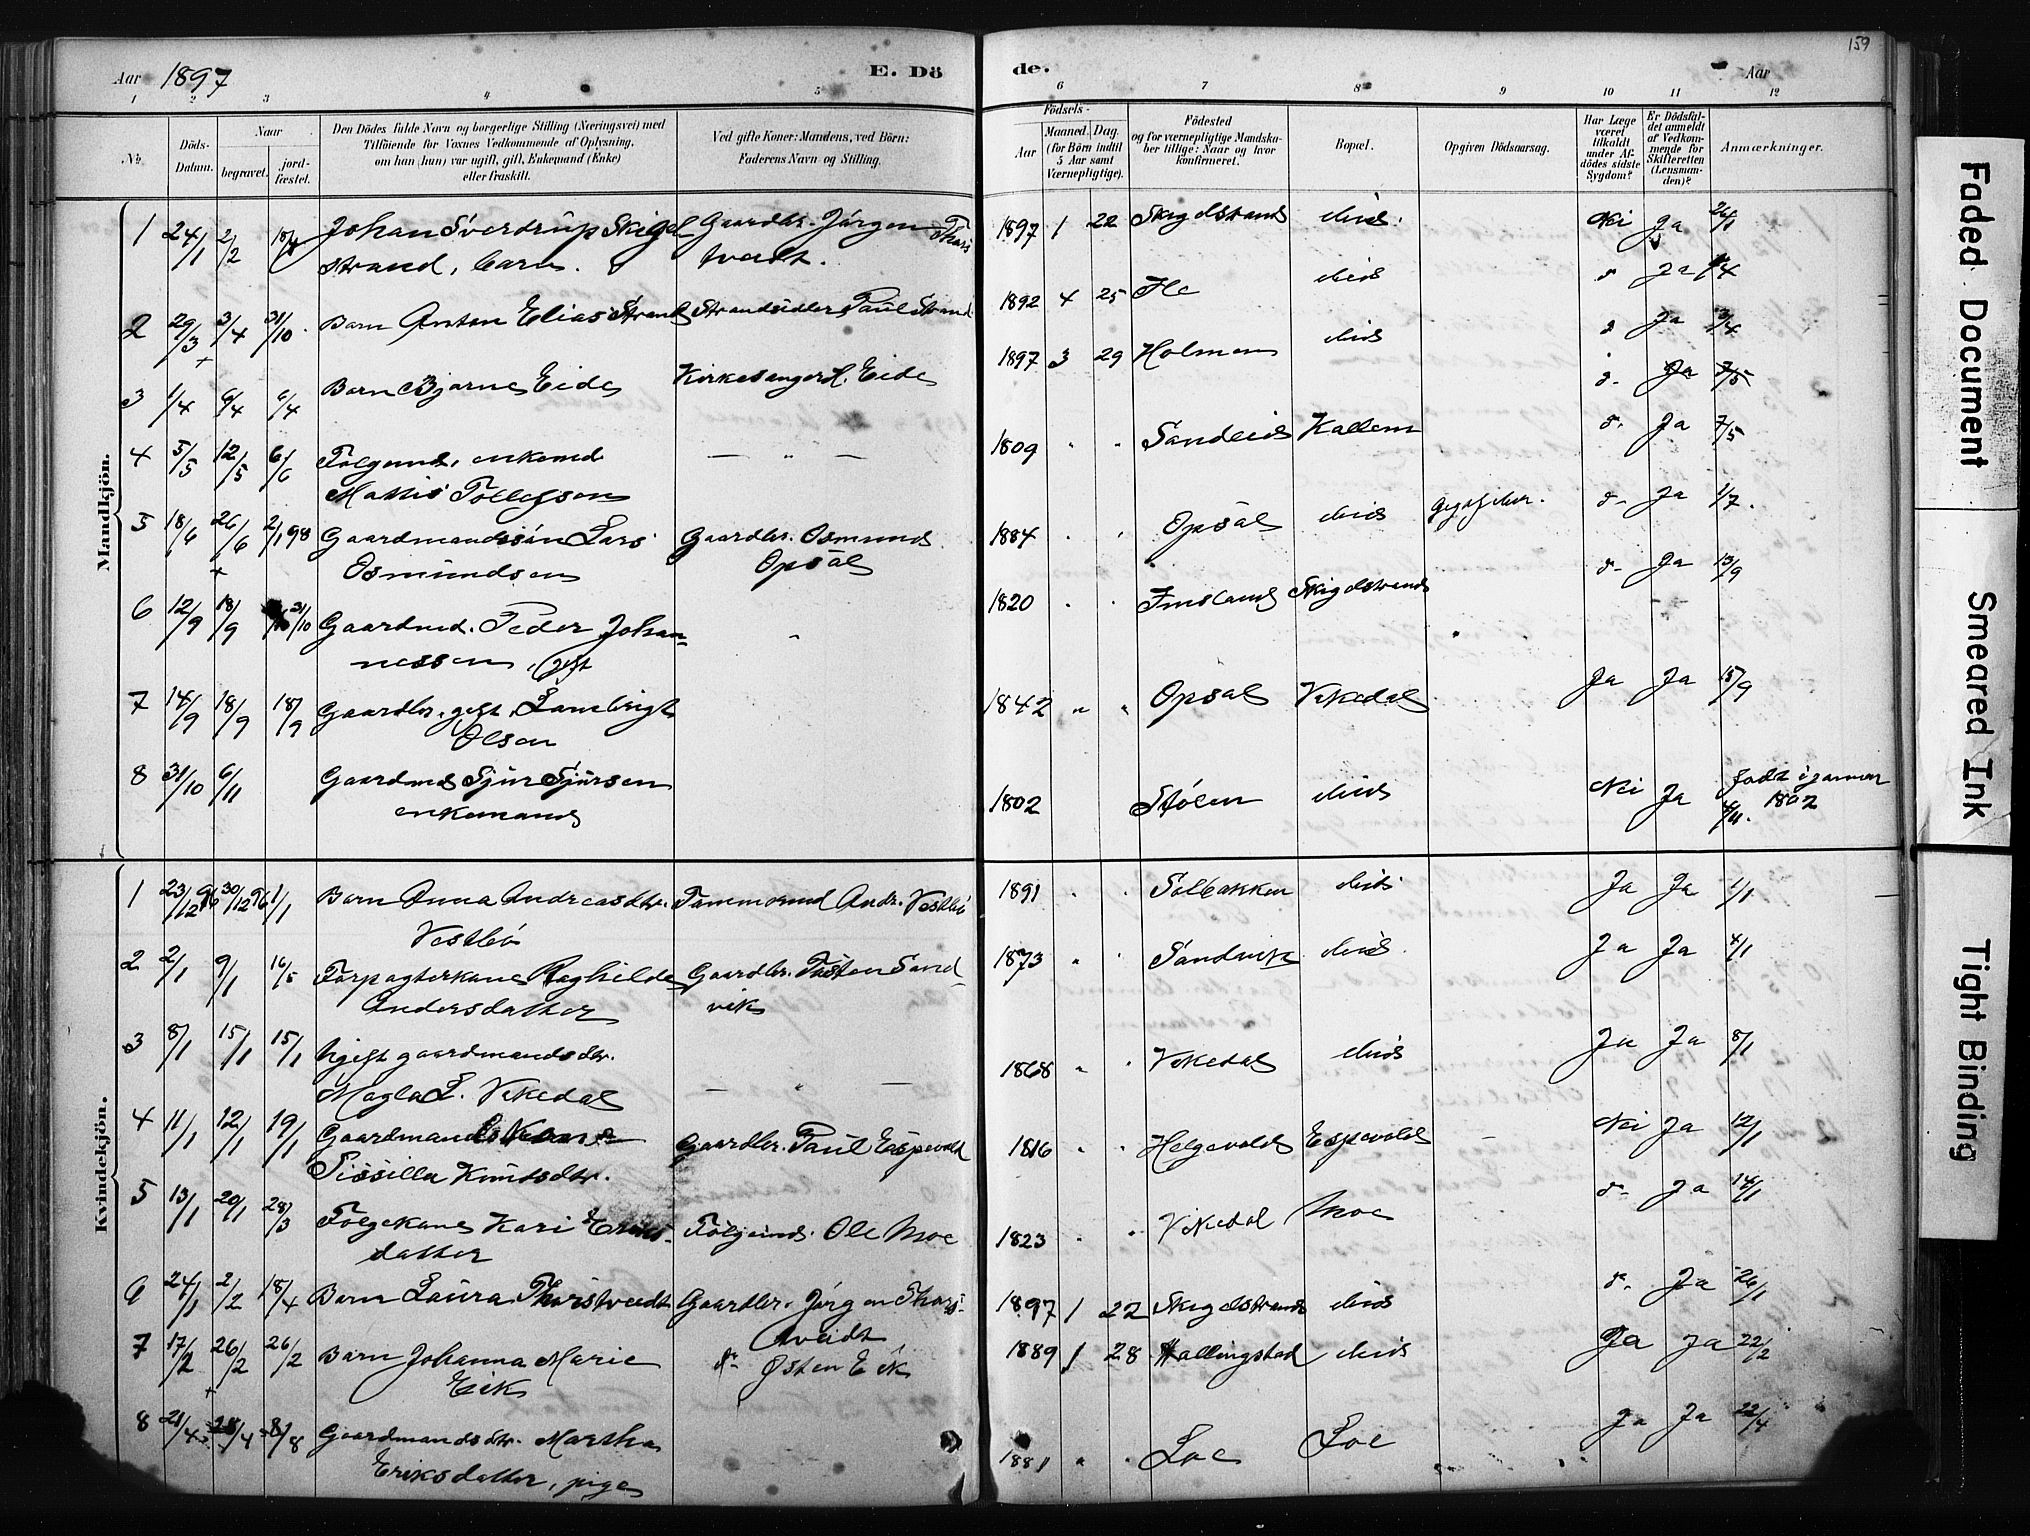 159
Aar 1897
E. Dö
de.
Aar
1 2 3 4 5
6 7 8 9 10 11 12
No.
Döds-
Datum.
Naar
begravet.
jord-
fæstet.
Den Dödes fulde Navn og borgerlige Stilling (Næringsvei) med
Tilföiende for Voxnes Vedkommende af Oplysning,
om han (hun) var ugift, gift, Enkemand (Enke)
eller fraskilt.
Ved gifte Koner: Mandens, ved Börn:
Faderens Navn og Stilling.
Födsels-
Aar
Maaned. Dag.
(for Börn indtil
5 Aar samt
Værnepligtige).
Födested
og for værnepligtige Mandska-
ber tillige: Naar og hvor
konfirmeret.
Bopæl.
Opgiven Dödsaarsag.
Har Læge
været
tilkaldt
under Af-
dödes sidste
Sygdom?
Er Dödsfal-
det anmeldt
af Vedkom-
mende for
Skifteretten
(Lensman-
den)?
Anmærkninger.
Mandkjön.
1 24/1 2/2 18/4 Johan Sverdrup Skigel Gaardbr. Jörgen Thors 1897 1 22 Skigelstrand Nei Ja 26/1
strand, barn. tvedt.
2 29/3 3/4 31/10 Barn Anton Elias Strand Strandsidder Paul Strand 1892 4 25 Ja
3 1/4 6/4 6/4 Barn Bjarne Eide Kirkesanger Eide 1897 3 29 Holmen Ja 3/4
Ja 7/5
4 5/5 12/5 6/6 enkemd — " — 1809 " " Sandeid Kallem Ja 7/5
Mattis Tollefsen
5 18/6 26/6 2/1 98 Gaardmandssön Lars Gaardbr. Osmund 1884 Opsal Ja 1/7.
Osmundsen Opsal
6 12/9 18/9 31/10 Gaardmd. Peder Johan- 1820 Imsland Skigelstrand Ja 13/9
nessen, gift
7 14/9 18/9 18/9 Gaardbr. gift, Lambrigt 1842 " " Opsal Vikedal Ja Ja 15/9
Olsen
8 31/10 6/11 Gaardmd Sjur Sjursen 1802 Stölen Nei Ja
enkemand 1802
Kvindekjön.
1 23/12 96 30/12 96 1/1 Barn Anna Andreasdtr. Tömmermd Andr. Vestbö 1891 Solbakken Ja Ja 1/1
Vestbö
2 2/1 9/1 16/5 Forpagterkone Raghilde Gaardbr. Tosten Sand 1873 Sandvik Ja Ja 4/1
Andersdatter vik
3 8/1 15/1 15/1 Ugift gaardmandsdtr. 1868 Vikedal Ja Ja 8/1
Magla L. Vikedal — " —
4 11/1 12/1 19/1 Gaardmands Gaardbr. Paul Espevold 1816 Helgevold Espevold Nei Ja 12/1
Sissilla Knutsdtr.
5 13/1 20/1 28/3 Fölgekone Kari Eriks- Ole Moe 1823 Vikedal Moe Ja 14/1
datter
6 24/1 2/2 18/4 Barn Laura Thorstvedt Gaardbr. Jörgen Thors- 1897 1 22 Skigelstrand Ja 26/1
tveidt
7 17/2 26/2 26/2 Barn Johanna Marie Östen Eik 1889 1 28 Hallingstad Ja Ja 22/2
Eik
8 21/4 28/4 8/8 Gaardmandsdtr. Martha 1881 " " Loe Loe Ja Ja 22/4
Eriksdatter, pige
Faded Document
Smeared Ink
Tight Binding